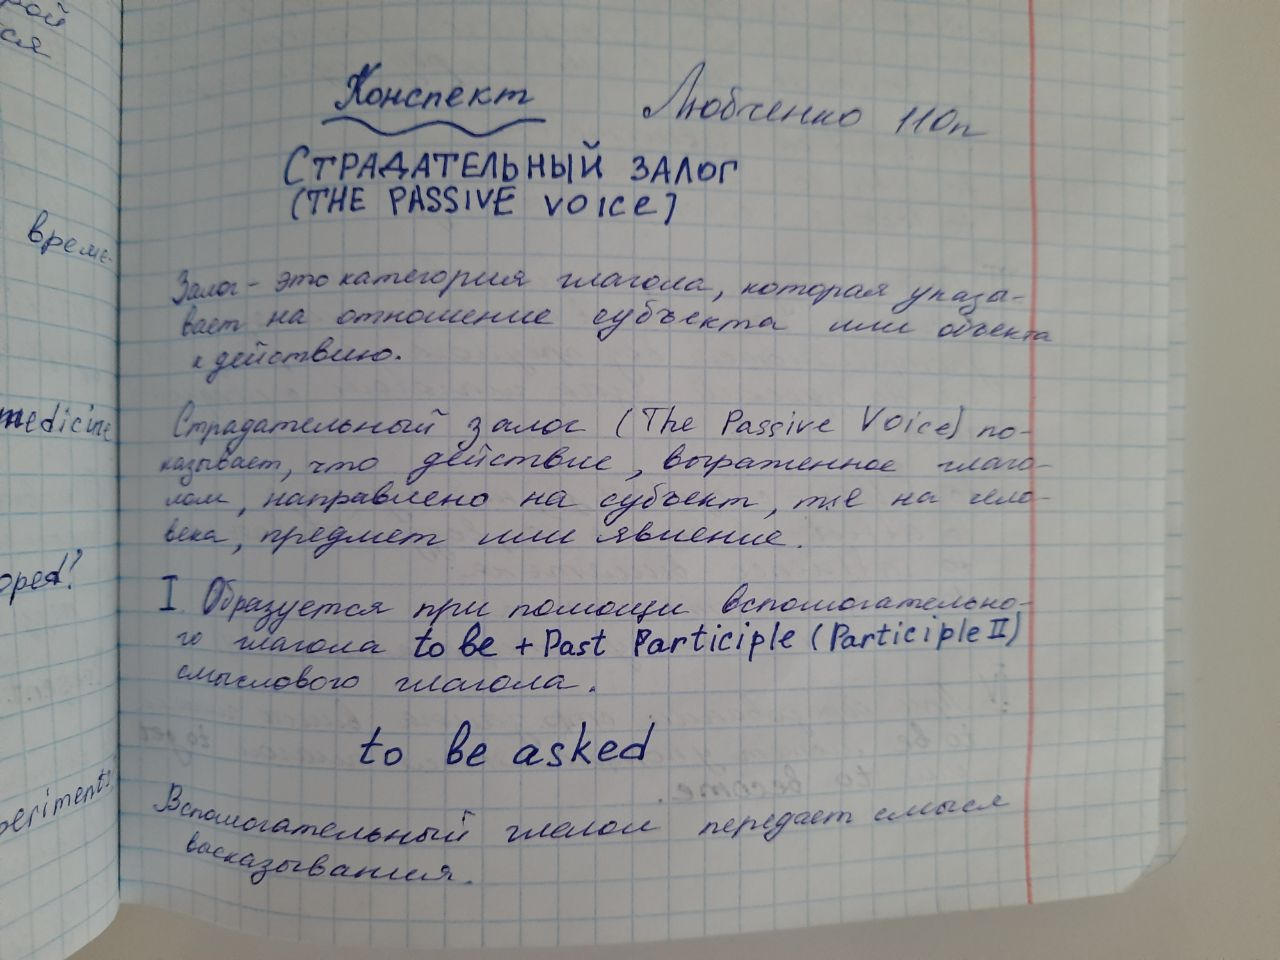 рой
ся
време-
medicine
oped?
periments
Конспект Любченко 110п
СТРАДАТЕЛЬНЫЙ ЗАЛОГ
(THE PASSIVE VOICE)
Залог - это категория глагола, которая указы-
вает на отношение субъекта или объекта
к действию.
Страдательный залог (The Passive Voice) по-
казывает, что действие, выраженное глаго-
лом, направлено на субъект, т.е на чело-
века, предмет или явление.
I. Образуется при помощи вспомогательно-
го глагола to be + Past Participle (Participle II)
смыслового глагола.
to be asked
Вспомогательный глагол передает смысл
высказывания.